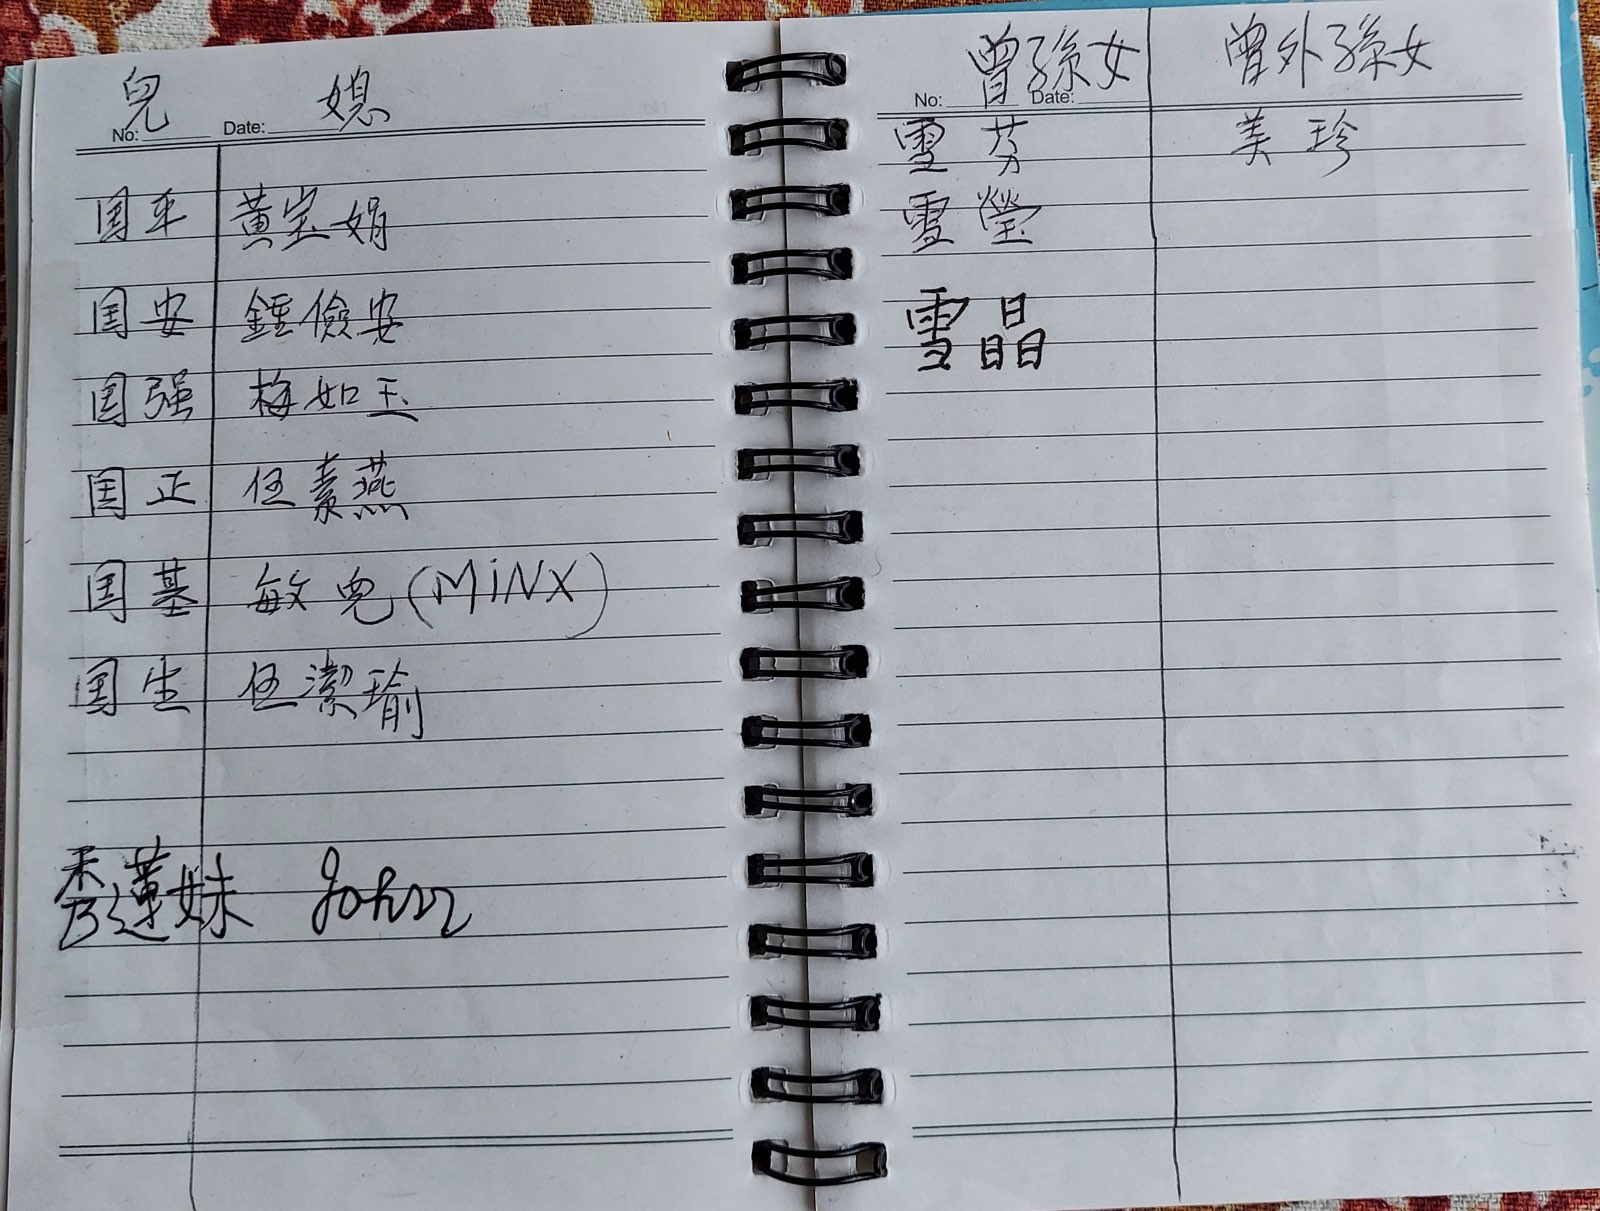 兒 媳
No: Date:
国平 黃宝娟
国安 鍾儉安
国强 梅如玉
国正 伍素燕
国基 敏兒(MiNX)
国生 伍潔瑜
秀蓮妹 John
曾孫女 曾外孫女
No: Date:
雪芬 美珍
雪瑩
雪晶